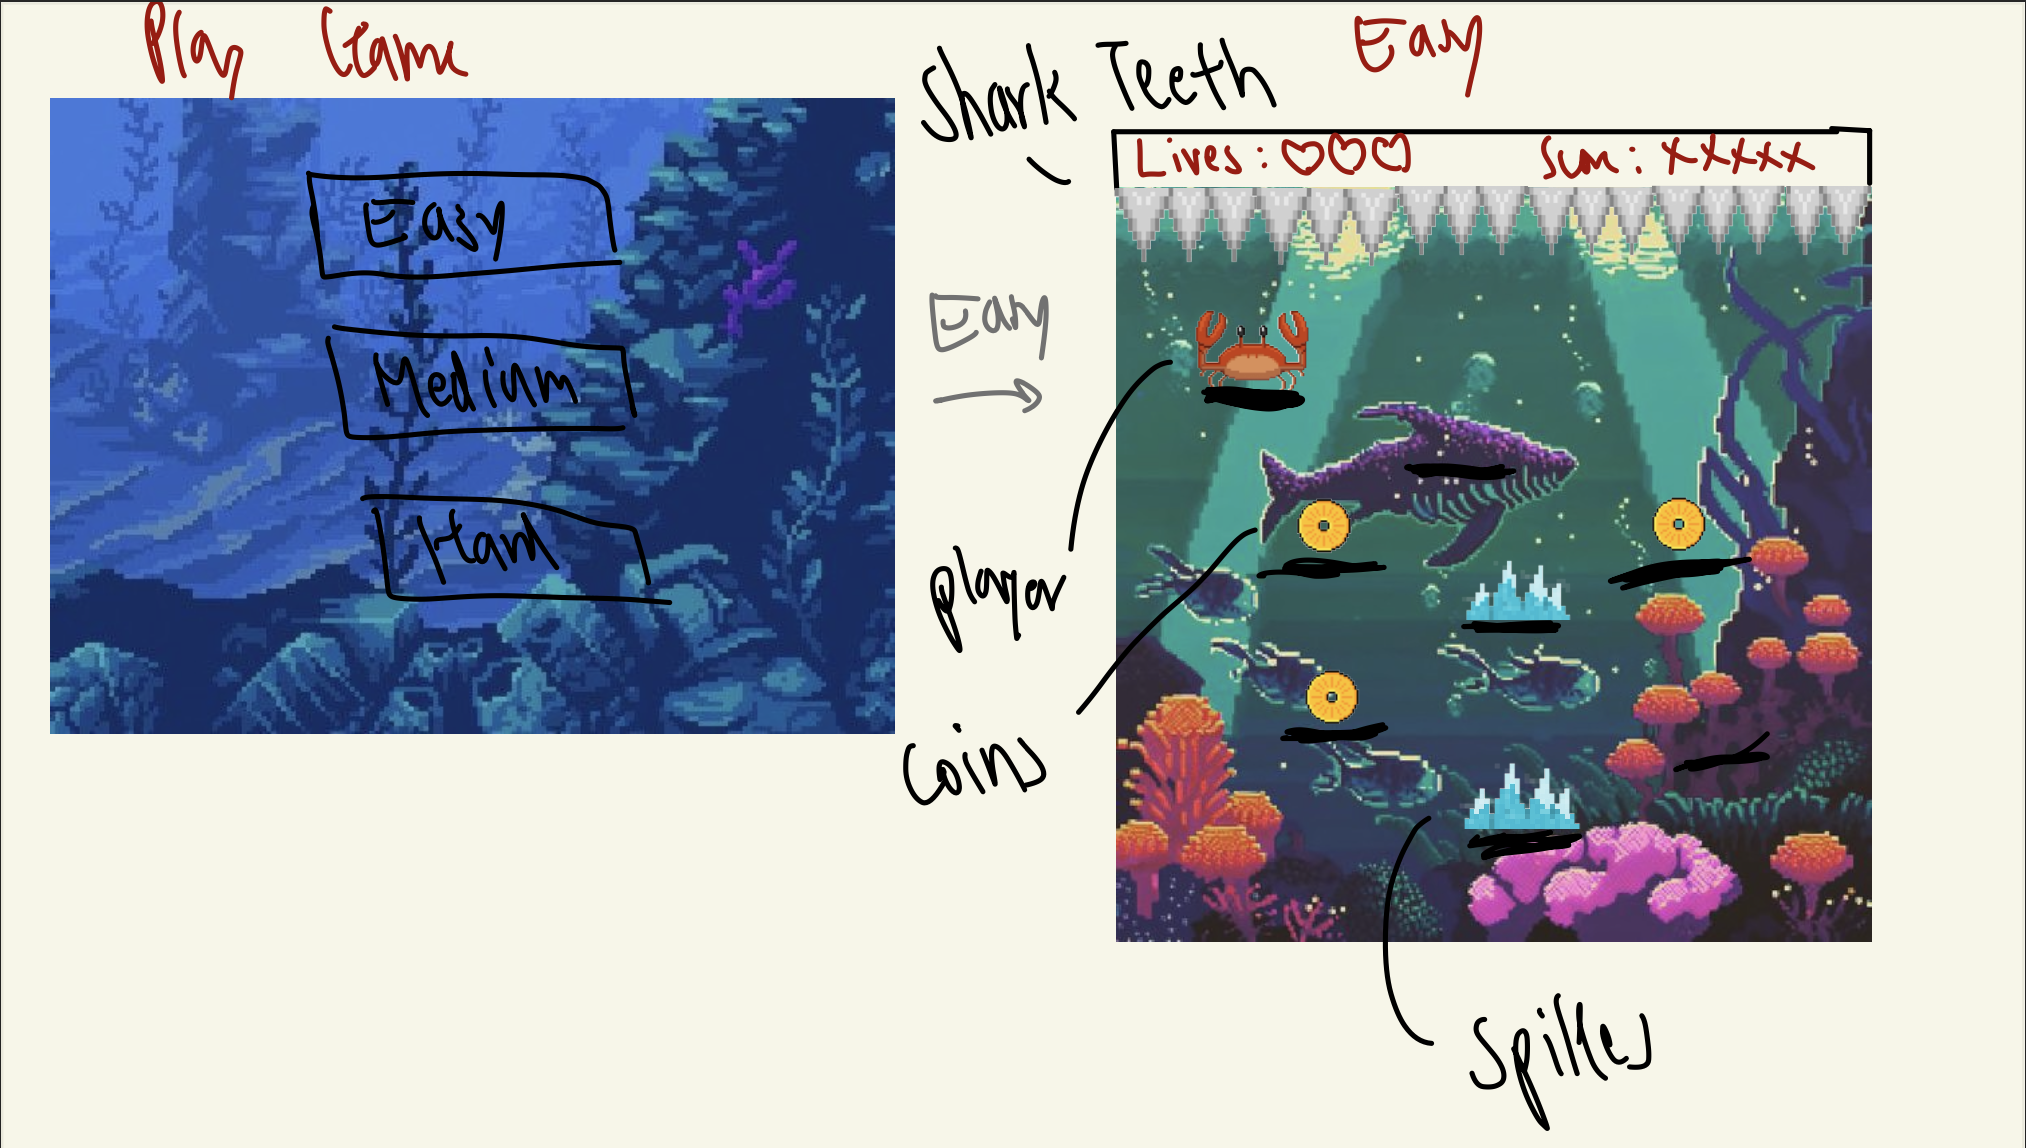 Play Game
Easy
Medium
Hard
Shark Teeth
Easy
Lives: ♡♡♡
Sum: XXXXX
Easy
player
Coins
Spikes